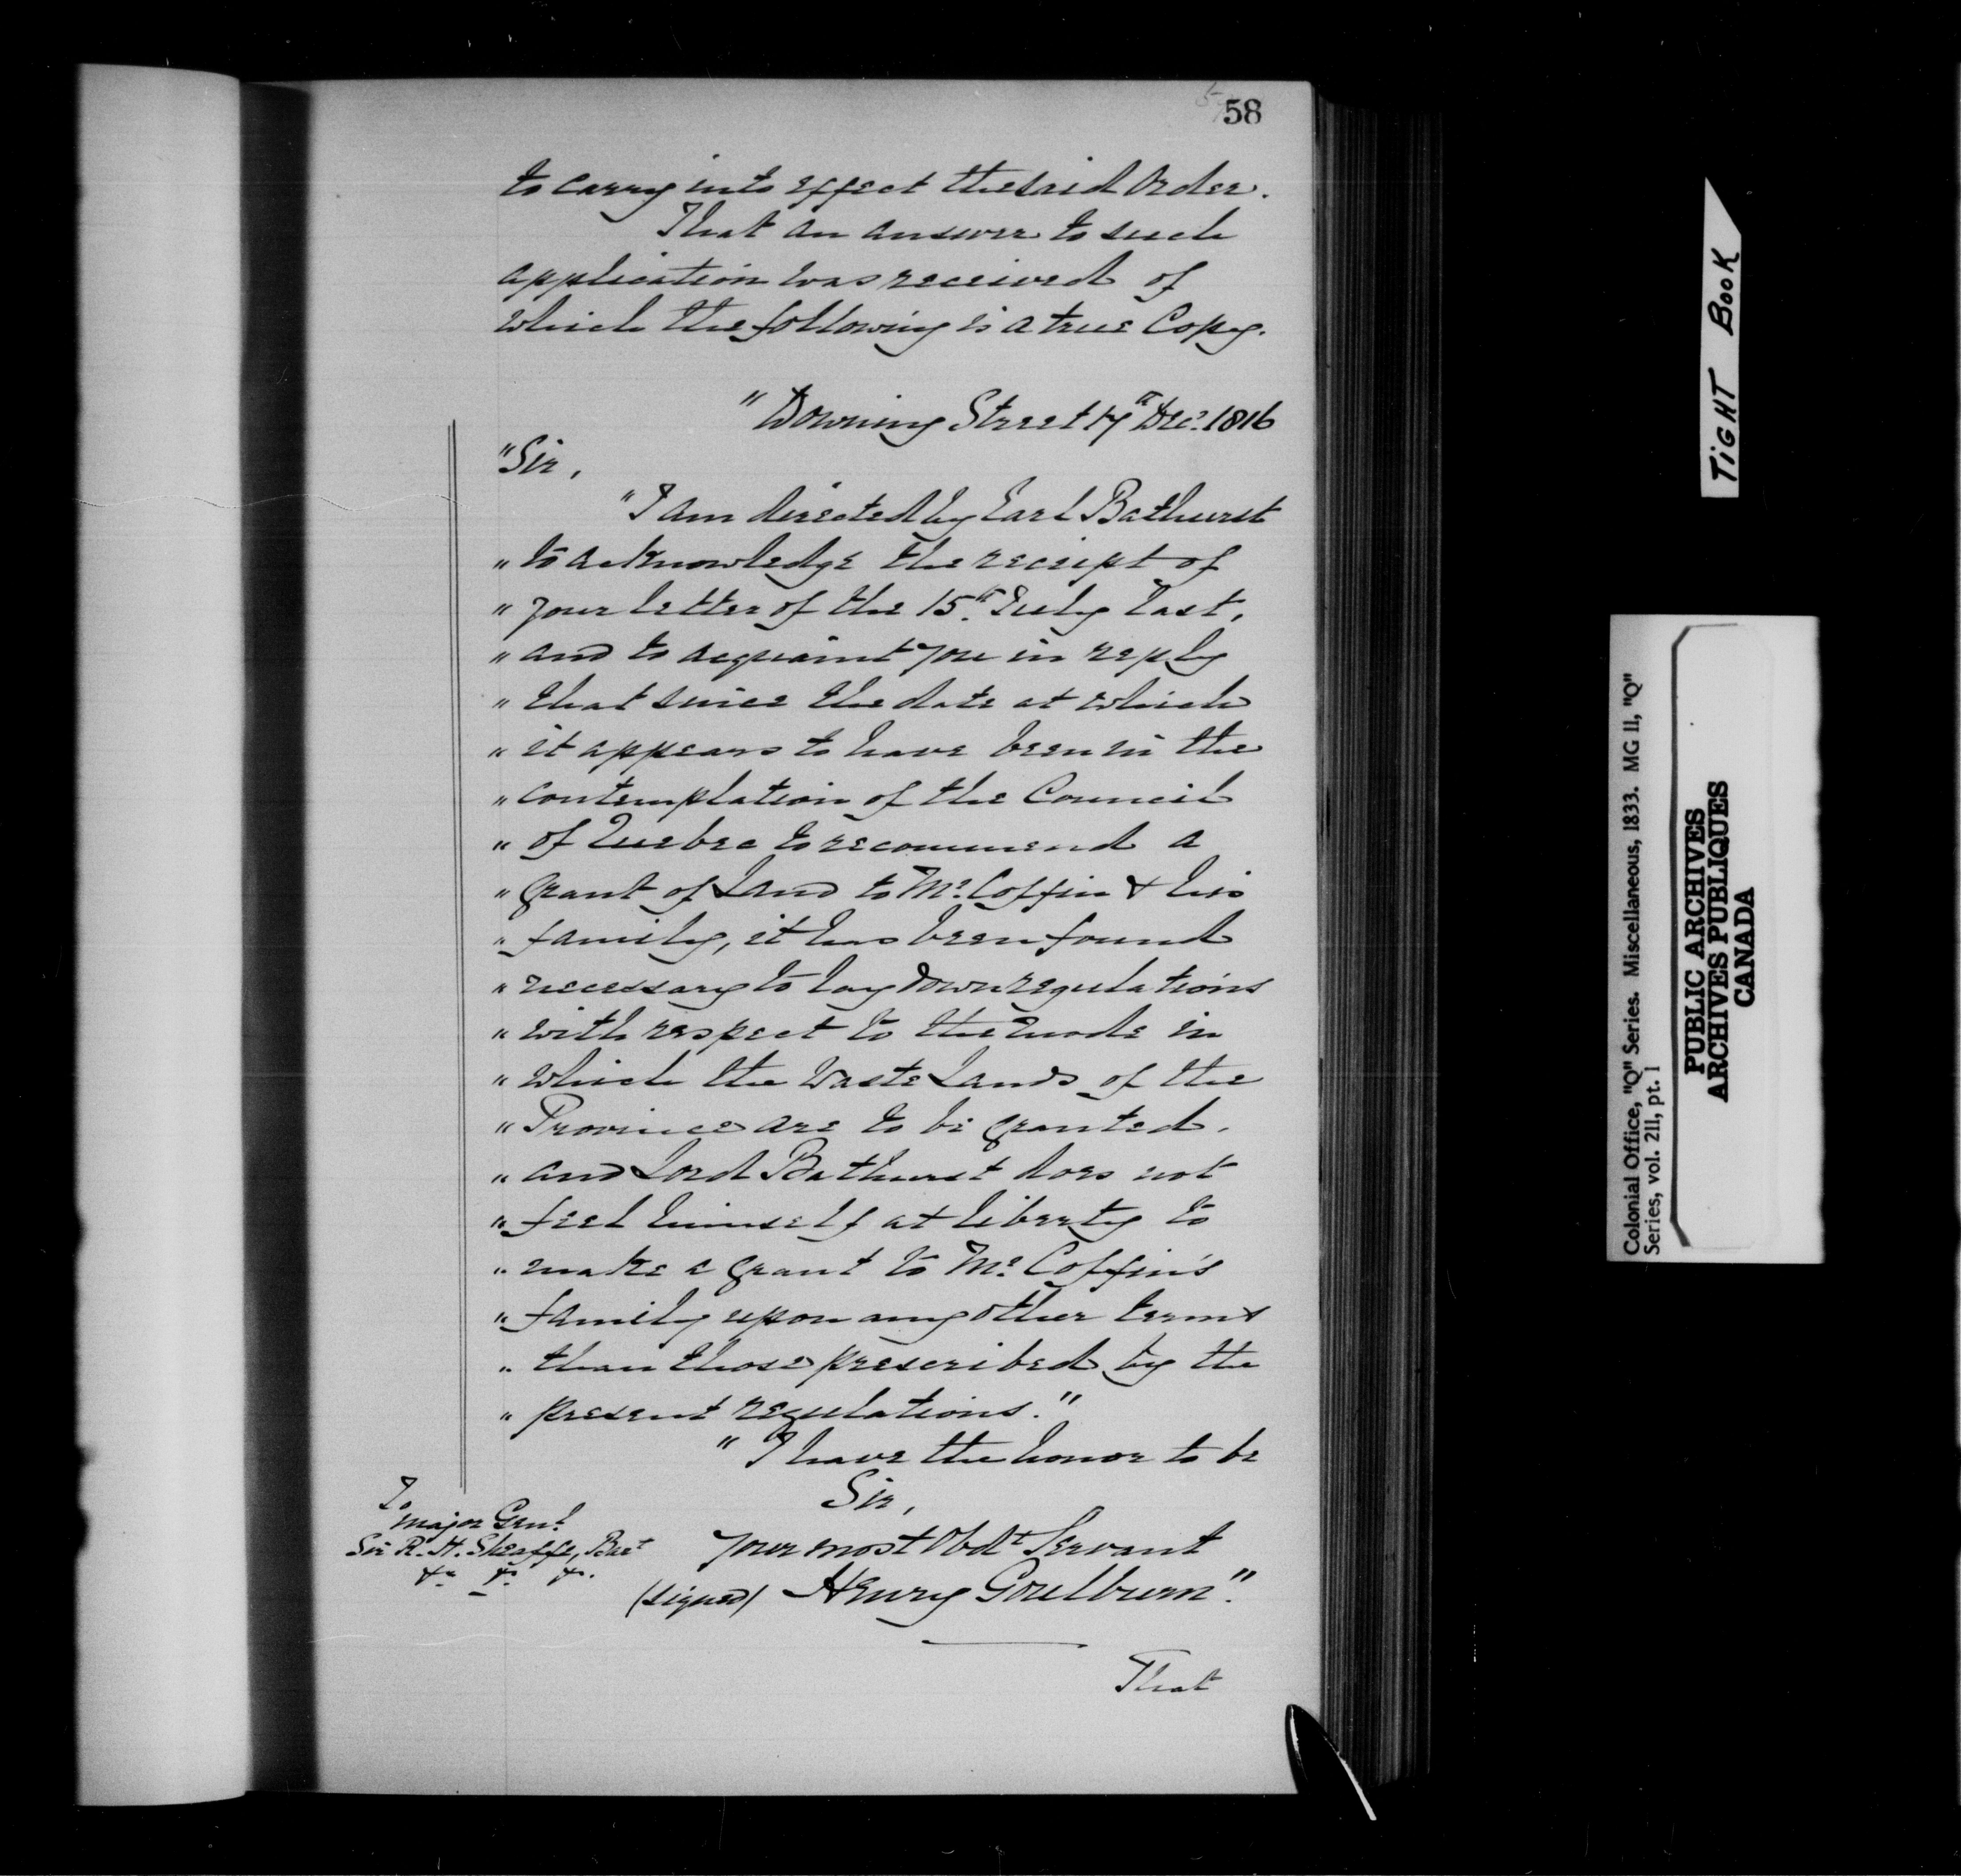 58
to carry into effect the said Order.
That an answer to such
application was received of
which the following is a true Copy.
"Downing Street 17th Decr. 1816
"Sir,
"I am directed by Earl Bathurst
" to acknowledge the receipt of
" your letter of the 15th July last,
" and to acquaint you in reply
" that since the date at which
" it appears to have been in the
" contemplation of the Council
" of Quebec to recommend a
" grant of Land to Mr. Coffin & his
" family, it has been found
" necessary to lay down regulations
" with respect to the mode in
" which the Waste Lands of the
" Province are to be granted.
" and Lord Bathurst does not
" feel himself at liberty to
" make a grant to Mr. Coffin's
" family upon any other terms
" than those prescribed by the
" present regulations."
" I have the honor to be
Sir,
Your most Obdt Servant
(signed) Henry Goulburn".
To
Major Genl.
Sir R. H. Sheaffe, Bart
&c &c. &c.
That
TIGHT BOOK
Colonial Office, "Q" Series. Miscellaneous, 1833. MG 11, "Q"
Series, vol. 211, pt. 1
PUBLIC ARCHIVES
ARCHIVES PUBLIQUES
CANADA